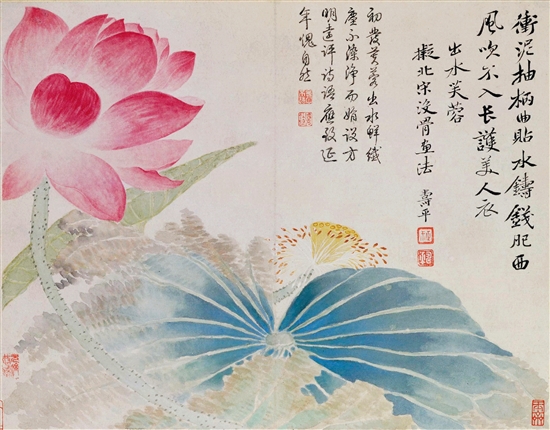 衝泥抽柄曲貼水鑄錢肥西
風吹不入長護美人衣
出水芙蓉
擬北宋没骨画法
壽平
初發芙蓉出水鮮纖
塵不染淨而娟設方
明遠評詩語應致延
年愧自然